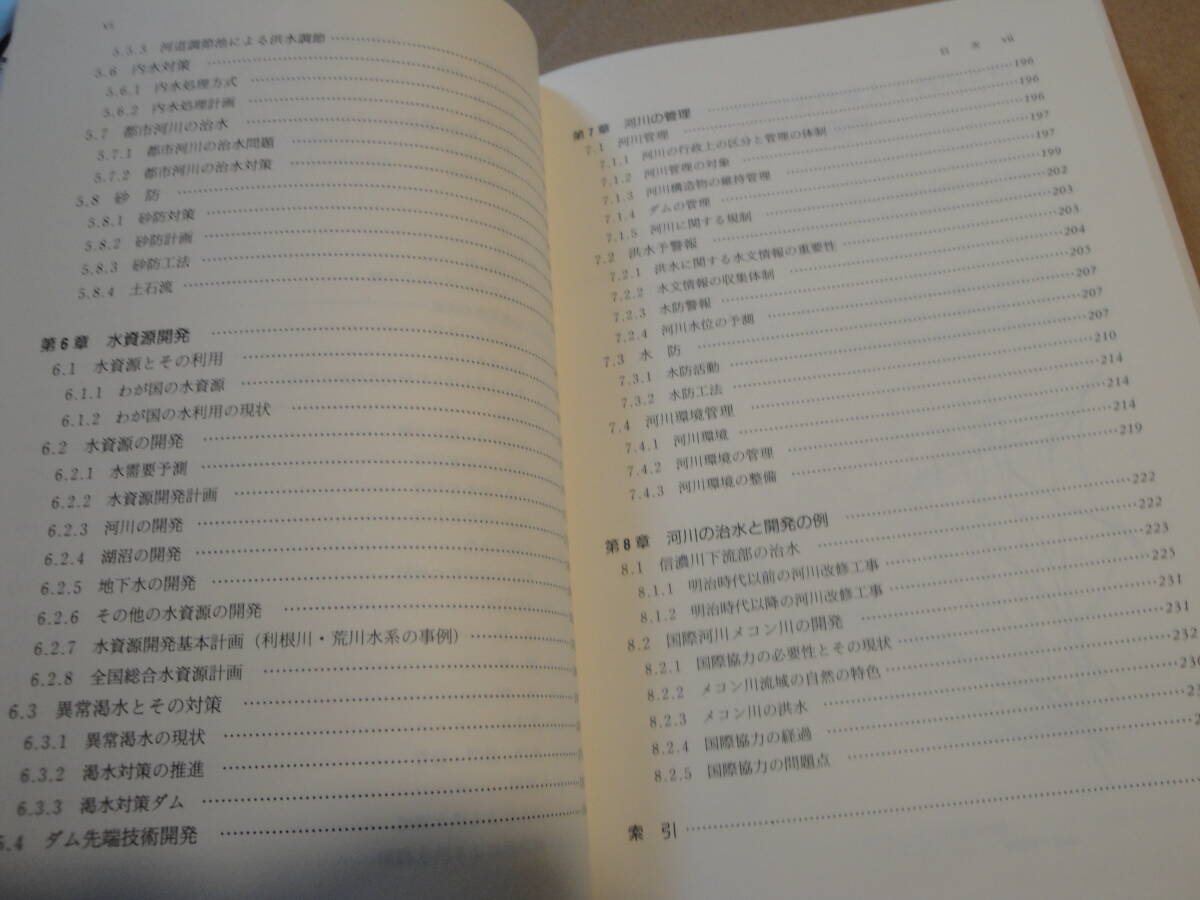 vi
5.5.3 河道調節池による洪水調節
5.6 内水対策
5.6.1 内水処理方式
5.6.2 内水処理計画
5.7 都市河川の治水
5.7.1 都市河川の治水問題
5.7.2 都市河川の治水対策
5.8 砂防
5.8.1 砂防対策
5.8.2 砂防計画
5.8.3 砂防工法
5.8.4 土石流
第6章 水資源開発
6.1 水資源とその利用
6.1.1 わが国の水資源
6.1.2 わが国の水利用の現状
6.2 水資源の開発
6.2.1 水需要予測
6.2.2 水資源開発計画
6.2.3 河川の開発
6.2.4 湖沼の開発
6.2.5 地下水の開発
6.2.6 その他の水資源の開発
6.2.7 水資源開発基本計画(利根川・荒川水系の事例)
6.2.8 全国総合水資源計画
6.3 異常渇水とその対策
6.3.1 異常渇水の現状
6.3.2 渇水対策の推進
6.3.3 渇水対策ダム
6.4 ダム先端技術開発
目次 vii
第7章 河川の管理 196
7.1 河川管理 196
7.1.1 河川の行政上の区分と管理の体制 196
7.1.2 河川管理の対象 197
7.1.3 河川構造物の維持管理 197
7.1.4 ダムの管理 199
7.1.5 河川に関する規制 202
7.2 洪水予警報 203
7.2.1 洪水に関する水文情報の重要性 203
7.2.2 水文情報の収集体制 204
7.2.3 水防警報 205
7.2.4 河川水位の予測 207
7.3 水防 207
7.3.1 水防活動 207
7.3.2 水防工法 210
7.4 河川環境管理 214
7.4.1 河川環境 214
7.4.2 河川環境の管理 214
7.4.3 河川環境の整備 219
第8章 河川の治水と開発の例 222
8.1 信濃川下流部の治水 222
8.1.1 明治時代以前の河川改修工事 223
8.1.2 明治時代以降の河川改修工事 225
8.2 国際河川メコン川の開発 231
8.2.1 国際協力の必要性とその現状 231
8.2.2 メコン川流域の自然の特色 232
8.2.3 メコン川の洪水
8.2.4 国際協力の経過
8.2.5 国際協力の問題点
索引